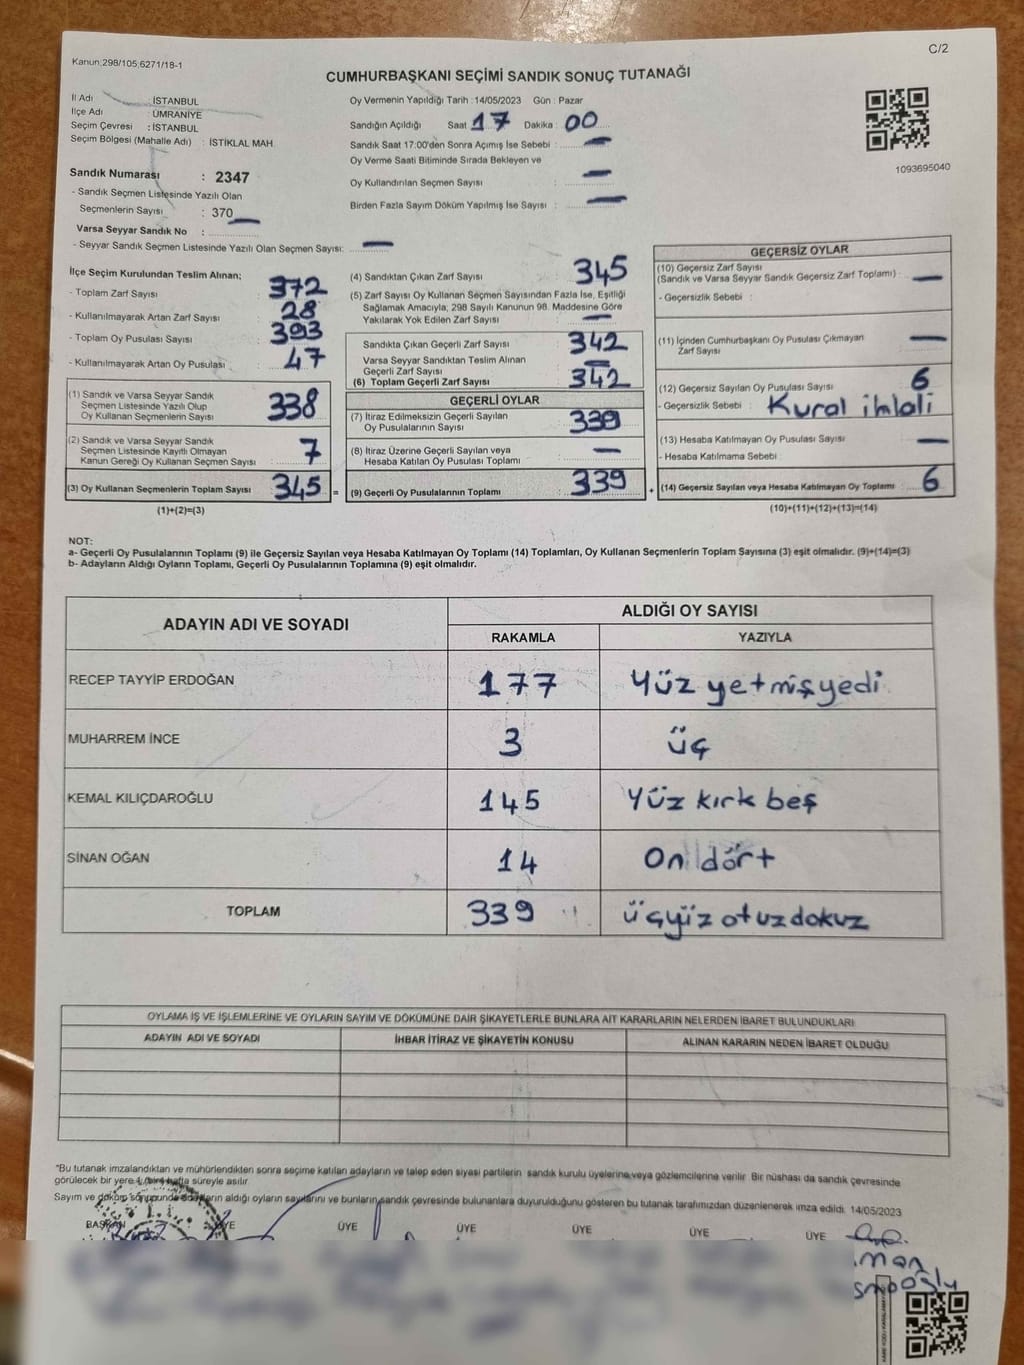 C/2
Kanun;298/105;6271/18-1
CUMHURBAŞKANI SEÇİMİ SANDIK SONUÇ TUTANAĞI
İl Adı : İSTANBUL
İlçe Adı : ÜMRANİYE
Seçim Çevresi : İSTANBUL
Seçim Bölgesi (Mahalle Adı) : İSTİKLAL MAH.
Sandık Numarası : 2347
- Sandık Seçmen Listesinde Yazılı Olan
Seçmenlerin Sayısı : 370
Varsa Seyyar Sandık No :
- Seyyar Sandık Seçmen Listesinde Yazılı Olan Seçmen Sayısı: —
Oy Vermenin Yapıldığı Tarih : 14/05/2023 Gün : Pazar
Sandığın Açıldığı Saat 17 Dakika : 00
Sandık Saat 17:00'den Sonra Açımış İse Sebebi : —
Oy Verme Saati Bitiminde Sırada Bekleyen ve
Oy Kullandırılan Seçmen Sayısı : —
Birden Fazla Sayım Döküm Yapılmış İse Sayısı : —
1093695040
İlçe Seçim Kurulundan Teslim Alınan;
- Toplam Zarf Sayısı : 372
- Kullanılmayarak Artan Zarf Sayısı : 28
- Toplam Oy Pusulası Sayısı : 393
- Kullanılmayarak Artan Oy Pusulası : 47
(1) Sandık ve Varsa Seyyar Sandık
Seçmen Listesinde Yazılı Olup
Oy Kullanan Seçmenlerin Sayısı : 338
(2) Sandık ve Varsa Seyyar Sandık
Seçmen Listesinde Kayıtlı Olmayan
Kanun Gereği Oy Kullanan Seçmen Sayısı : 7
(3) Oy Kullanan Seçmenlerin Toplam Sayısı : 345 =
(1)+(2)=(3)
(4) Sandıktan Çıkan Zarf Sayısı : 345
(5) Zarf Sayısı Oy Kullanan Seçmen Sayısından Fazla İse, Eşitliği
Sağlamak Amacıyla, 298 Sayılı Kanunun 98. Maddesine Göre
Yakılarak Yok Edilen Zarf Sayısı : —
Sandıkta Çıkan Geçerli Zarf Sayısı : 342
Varsa Seyyar Sandıktan Teslim Alınan
Geçerli Zarf Sayısı : —
(6) Toplam Geçerli Zarf Sayısı : 342
GEÇERLİ OYLAR
(7) İtiraz Edilmeksizin Geçerli Sayılan
Oy Pusulalarının Sayısı : 339
(8) İtiraz Üzerine Geçerli Sayılan veya
Hesaba Katılan Oy Pusulası Toplamı : —
(9) Geçerli Oy Pusulalarının Toplamı : 339 +
GEÇERSİZ OYLAR
(10) Geçersiz Zarf Sayısı
(Sandık ve Varsa Seyyar Sandık Geçersiz Zarf Toplamı) : —
- Geçersizlik Sebebi :
(11) İçinden Cumhurbaşkanı Oy Pusulası Çıkmayan
Zarf Sayısı : —
(12) Geçersiz Sayılan Oy Pusulası Sayısı : 6
- Geçersizlik Sebebi : Kural ihlali
(13) Hesaba Katılmayan Oy Pusulası Sayısı : —
- Hesaba Katılmama Sebebi :
(14) Geçersiz Sayılan veya Hesaba Katılmayan Oy Toplamı : 6
(10)+(11)+(12)+(13)=(14)
NOT:
a- Geçerli Oy Pusulalarının Toplamı (9) ile Geçersiz Sayılan veya Hesaba Katılmayan Oy Toplamı (14) Toplamları, Oy Kullanan Seçmenlerin Toplam Sayısına (3) eşit olmalıdır. (9)+(14)=(3)
b- Adayların Aldığı Oyların Toplamı, Geçerli Oy Pusulalarının Toplamına (9) eşit olmalıdır.
ADAYIN ADI VE SOYADI ALDIĞI OY SAYISI
RAKAMLA YAZIYLA
RECEP TAYYİP ERDOĞAN 177 Yüz yetmişyedi
MUHARREM İNCE 3 üç
KEMAL KILIÇDAROĞLU 145 Yüz kırk beş
SİNAN OĞAN 14 On dört
TOPLAM 339 üçyüz otuzdokuz
OYLAMA İŞ VE İŞLEMLERİNE VE OYLARIN SAYIM VE DÖKÜMÜNE DAİR ŞİKAYETLERLE BUNLARA AİT KARARLARIN NELERDEN İBARET BULUNDUKLARI
ADAYIN ADI VE SOYADI İHBAR İTİRAZ VE ŞİKAYETİN KONUSU ALINAN KARARIN NEDEN İBARET OLDUĞU
*Bu tutanak imzalandıktan ve mühürlendikten sonra seçime katılan adayların ve talep eden siyasi partilerin sandık kurulu üyelerine veya gözlemcilerine verilir. Bir nüshası da sandık çevresinde
görülecek bir yere 1 (bir) hafta süreyle asılır.
Sayım ve döküm sonucunda adayların aldığı oyların sayılarını ve bunların sandık çevresinde bulunanlara duyurulduğunu gösteren bu tutanak tarafımızdan düzenlenerek imza edildi. 14/05/2023
BAŞKAN ÜYE ÜYE ÜYE ÜYE ÜYE ÜYE